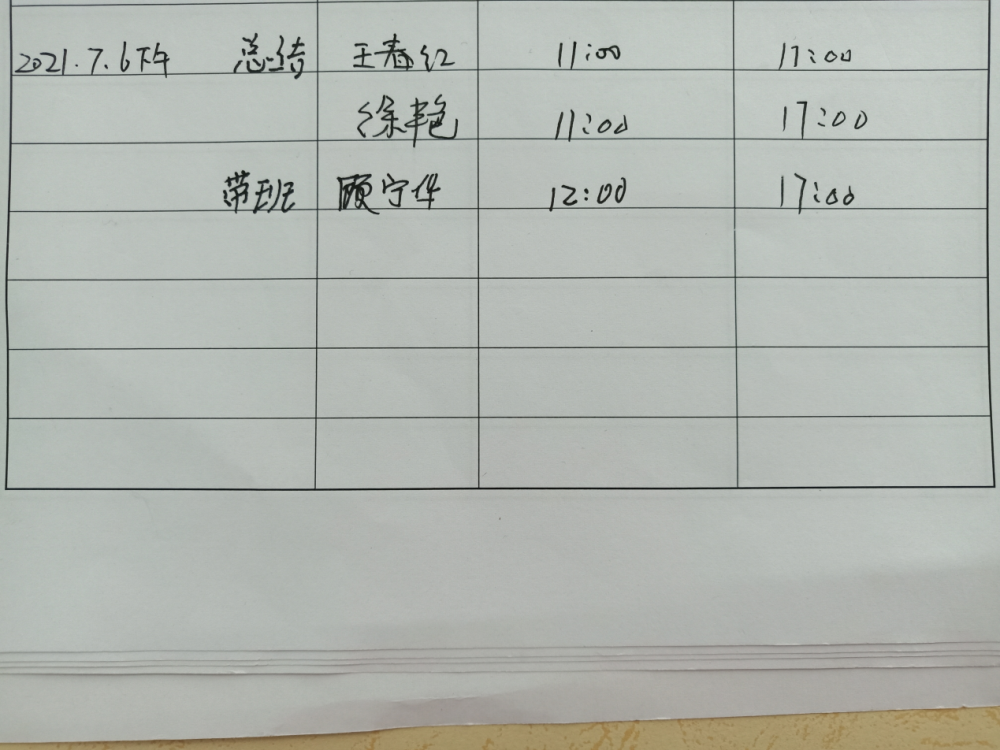 2021.7.6下午 总结 王春红 11:00 17:00
徐艳 11:00 17:00
带班 顾宁华 12:00 17:00